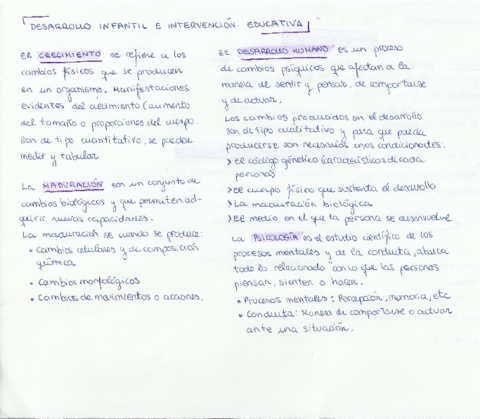 DESARROLLO INFANTIL E INTERVENCIÓN EDUCATIVA
El CRECIMIENTO se refiere a los
cambios físicos que se producen
en un organismo. Manifestaciones
evidentes del crecimiento (aumento
del tamaño o proporciones del cuerpo.
Son de tipo cuantitativo, se pueden
medir y tabular
La MADURACIÓN son un conjunto de
cambios biológicos y que permiten ad-
quirir nuevas capacidades.
La maduración se cuando se produce:
• Cambios celulares y de composición
química
• Cambios morfológicos
• Cambios de movimientos o acciones.
El DESARROLLO HUMANO es un proceso
de cambios psíquicos que afectan a la
manera de sentir y pensar, de comportarse
y de actuar.
Los cambios producidos en el desarrollo
son de tipo cualitativo y para que pueda
producirse son necesarios unos condicionantes:
> El código genético (características de cada
persona)
> El cuerpo físico que sustenta el desarrollo
> La maduración biológica
> El medio en el que la persona se desenvuelve
La PSICOLOGÍA es el estudio científico de los
procesos mentales y de la conducta, abarca
todo lo relacionado con lo que las personas
piensan, sienten o hacen.
• Procesos mentales: Percepción, memoria, etc
• Conducta: Manera de comportarse o actuar
ante una situación.